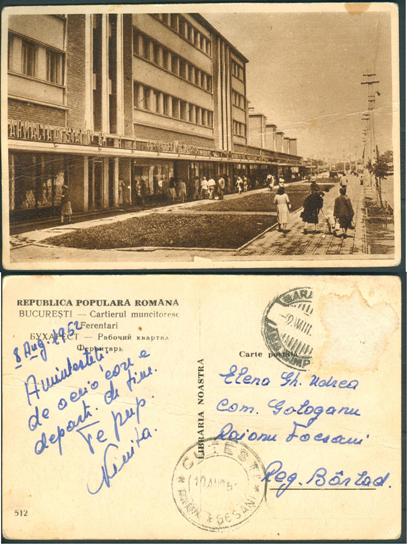 REPUBLICA POPULARA ROMÂNA
BUCUREȘTI — Cartierul muncitoresc
Ferentari
БУХАРЕСТ — Рабочий квартал
Ферентарь
8 Aug. 1952
Amintește-ți
de acei care e
departe de tine.
Te pup
LIBRĂRIA NOASTRĂ
Carte poștală
Elena Gh.
com. Gologanu
Raionu Focsani
Reg. Bârlad
512